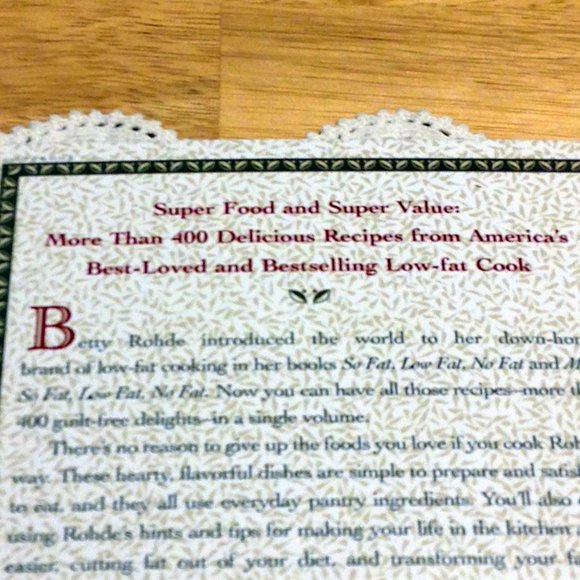 Super Food and Super Value:
More Than 400 Delicious Recipes from America's
Best-Loved and Bestselling Low-fat Cook
Betty Rohde introduced the world to her down-hom
brand of low-fat cooking in her books So Fat, Low Fat, No Fat and M
So Fat, Low Fat, No Fat. Now you can have all those recipes–more t
400 guilt-free delights–in a single volume.
There's no reason to give up the foods you love if you cook Roh
way. These hearty, flavorful dishes are simple to prepare and satis
to eat, and they all use everyday pantry ingredients. You'll also
using Rohde's hints and tips for making your life in the kitchen
easier, cutting fat out of your diet, and transforming your f